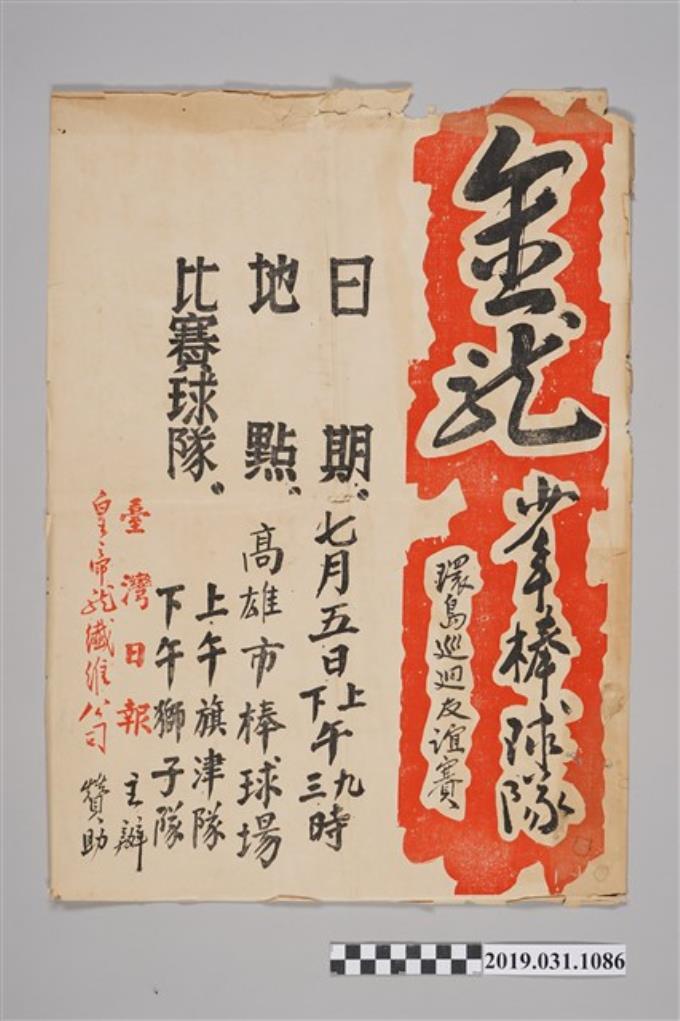 金龙
少年棒球隊
環島巡迴友誼賽
日期：七月五日上午九時
下午三時
地點：高雄市棒球場
比賽球隊：上午旗津隊
下午獅子隊
臺灣日報 主辦
皇帝龙纖維公司 贊助
2019.031.1086